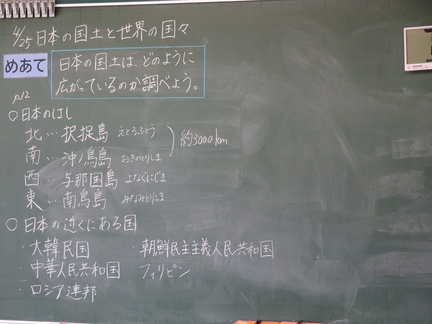 4/25 日本の国土と世界の国々
めあて
日本の国土は、どのように
広がっているのか調べよう。
p.12
○日本のはし
北…択捉島 えとろふとう
南…沖ノ鳥島 おきのとりしま
西 与那国島 よなぐにじま
東…南鳥島 みなみとりしま
約3000km
○日本の近くにある国
・大韓民国 ・朝鮮民主主義人民共和国
・中華人民共和国 フィリピン
ロシア連邦